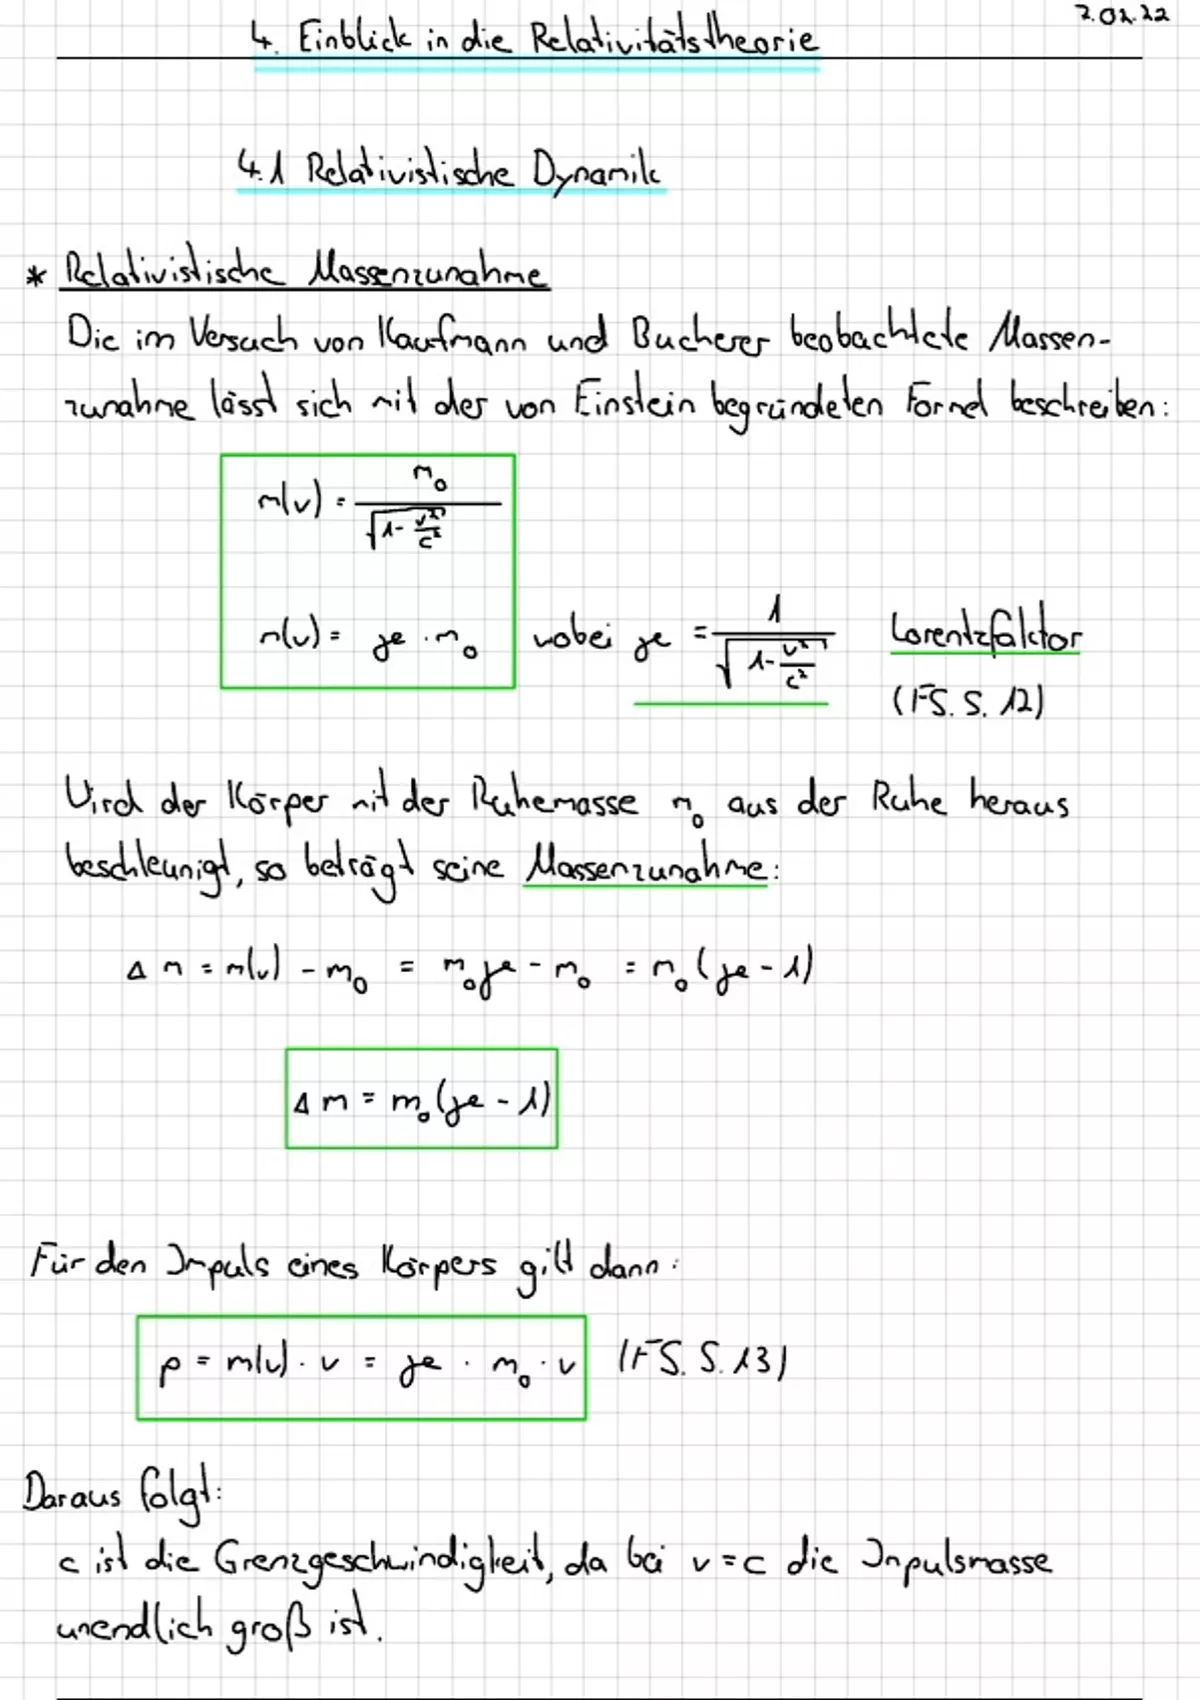 7.02.22
4. Einblick in die Relativitätstheorie
4.1 Relativistische Dynamik
* Relativistische Massenzunahme
Die im Versuch von Kaufmann und Bucherer beobachtete Massen-
zunahme lässt sich mit der von Einstein begründeten Formel beschreiben:
m(v) = m₀ / √(1 - v²/c²)
m(v) = γe · m₀ wobei γe = 1 / √(1 - v²/c²) Lorentzfaktor
(FS. S. 12)
Wird der Körper mit der Ruhemasse m₀ aus der Ruhe heraus
beschleunigt, so beträgt seine Massenzunahme:
Δm = m(v) - m₀ = m₀γe - m₀ = m₀(γe - 1)
Δm = m₀(γe - 1)
Für den Impuls eines Körpers gilt dann:
p = m(v) · v = γe · m₀ · v (FS. S. 13)
Daraus folgt:
c ist die Grenzgeschwindigkeit, da bei v = c die Impulsmasse
unendlich groß ist.